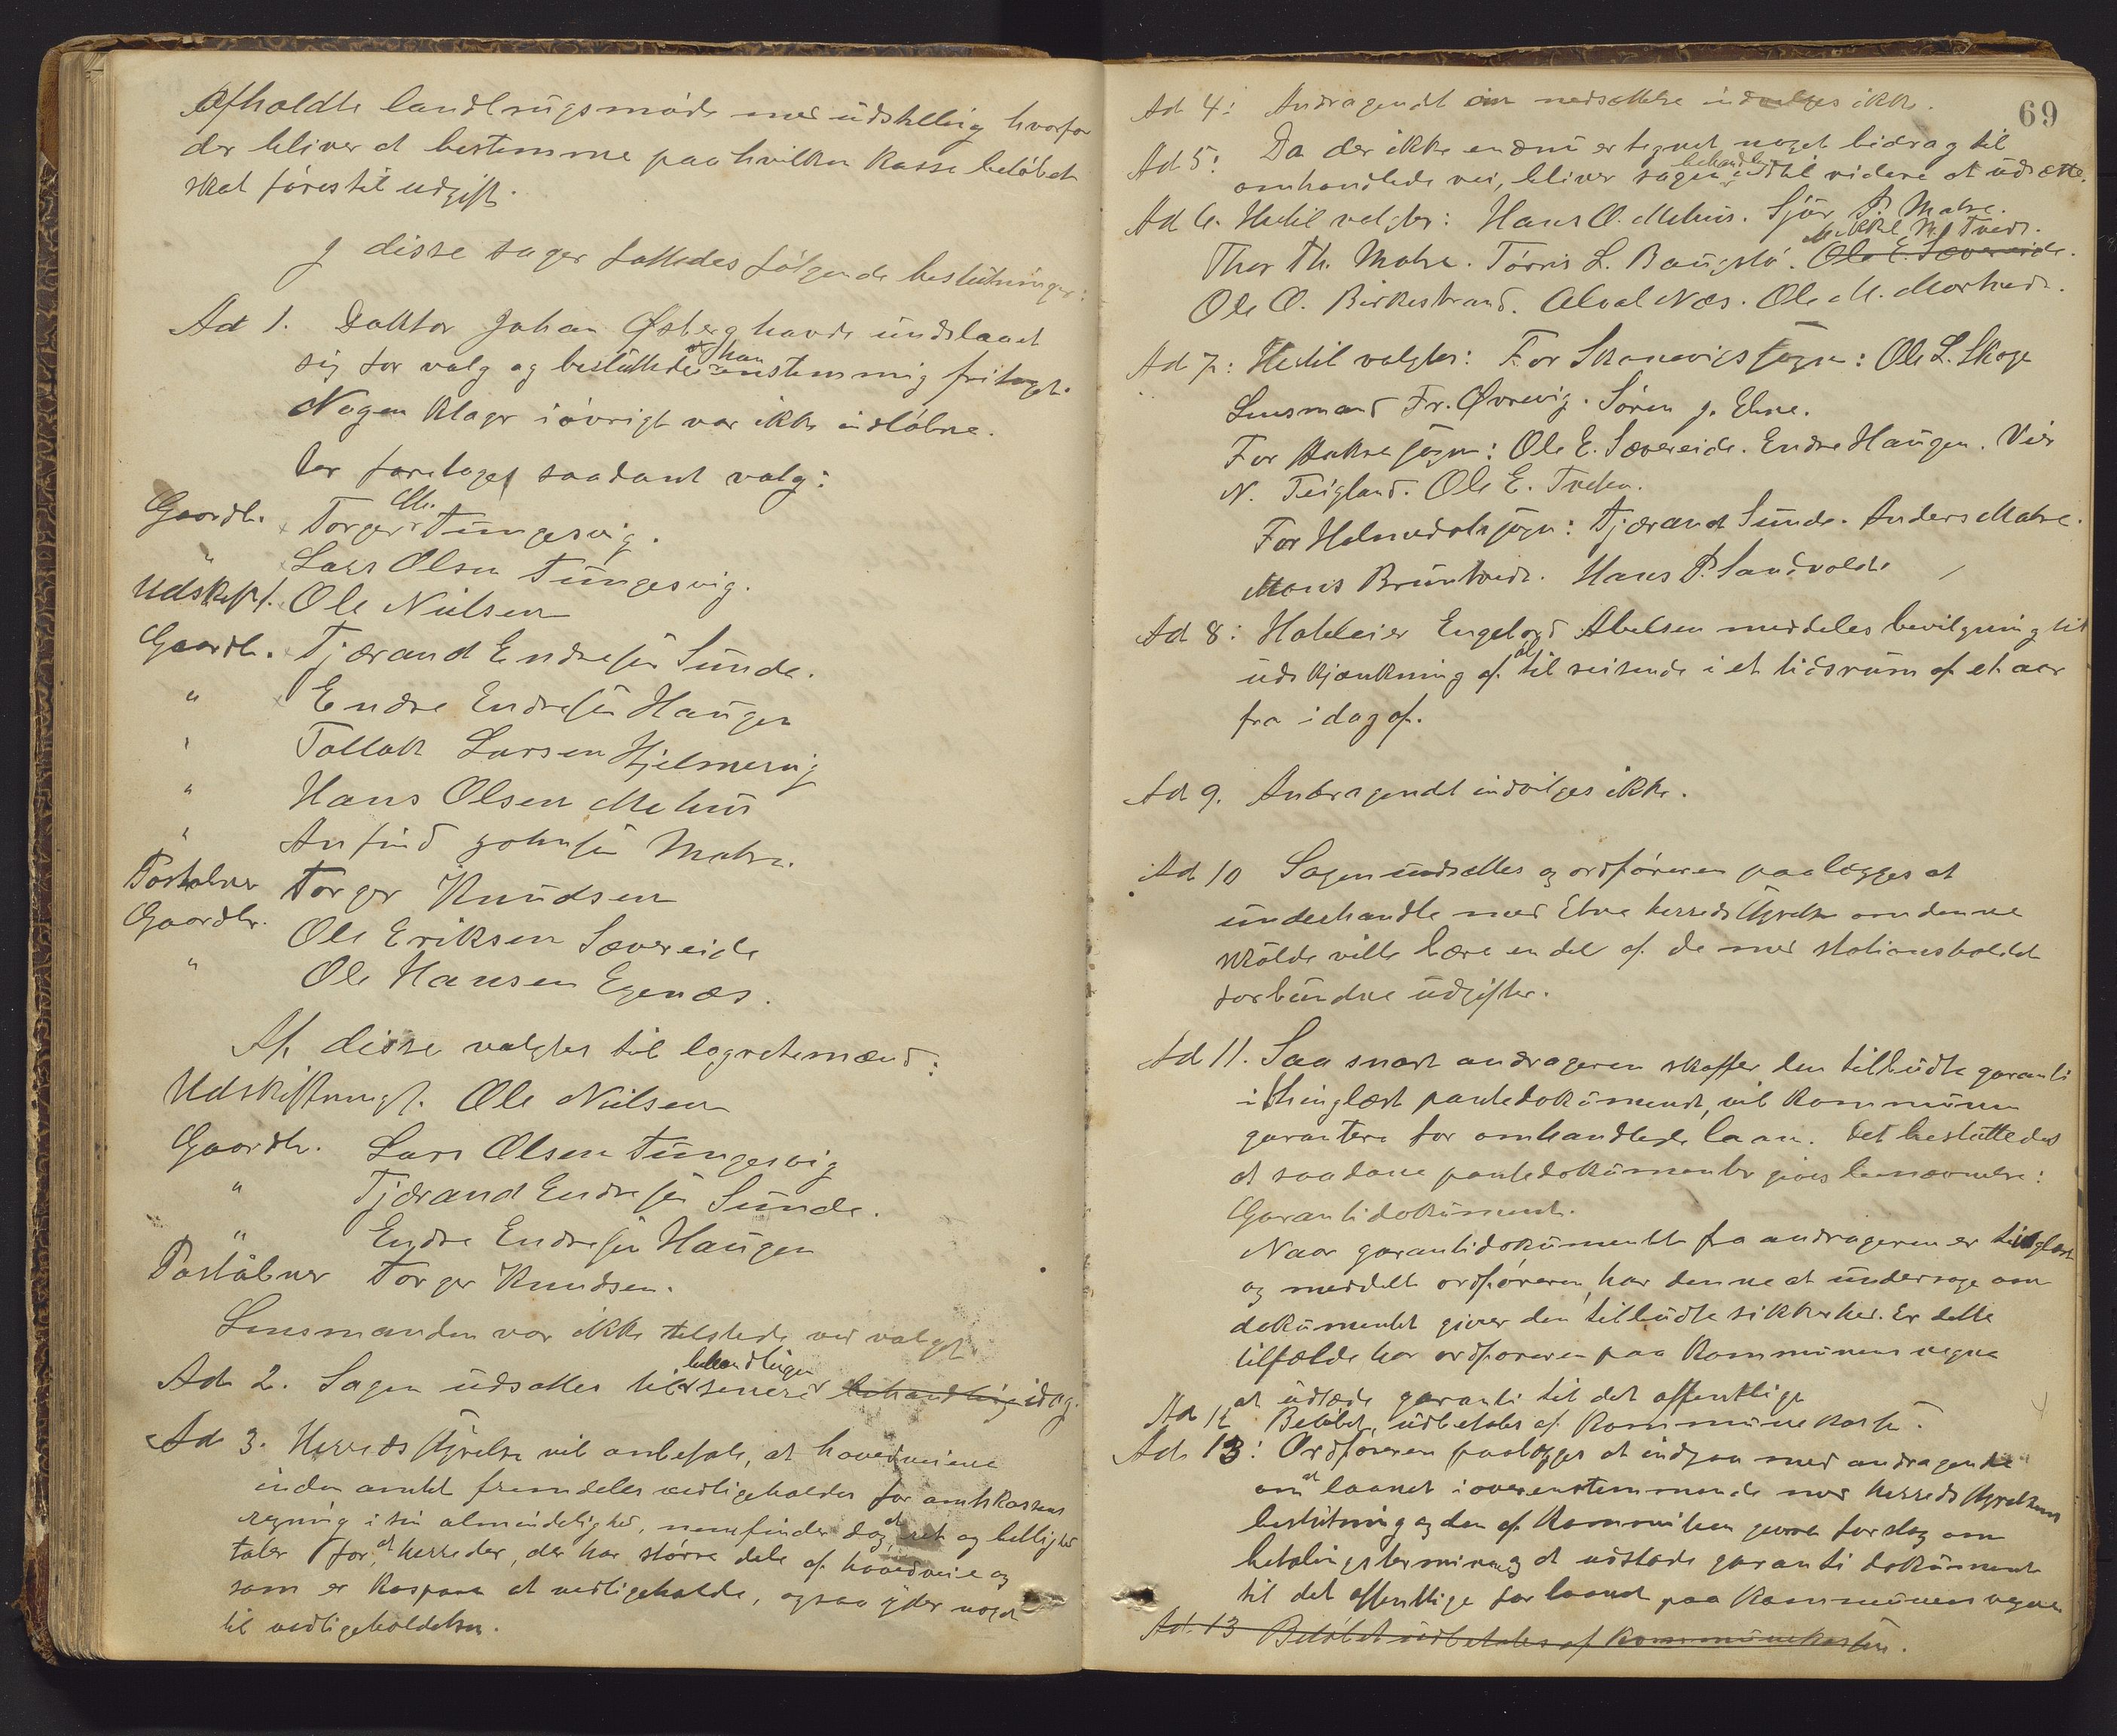 Afholdte landbrugsmöde med üdstelling hvorfor
der bliver at bestemme paa hvilken Kasse belöbet
skal föres til udgift.
I disse sager fattedes fölgende beslütninger:
Ad 1. Doktor Johan Østberg havde ündslaaet
sig for valg og beslüttedes han enstemmig fritaget.
Nogen klager iövrigt var ikke indløbne.
ler foretaget saadant valg:
Gaardbr. Torger Chr. Tüngesvig.
" Lars Olsen Tüngesvig.
Udskiftf. Ole Nielsen
Gaardbr. Tjærand Endresen Sünde.
" Endre Endresen Haügen
" Tollak Larsen Hjelmervig
" Hans Olsen Mehüs
" Anfind Johnsen Matre.
Postaabner Torger Knüdsen
Gaardbr. Ole Eriksen Sævereide
" Ole Hansen Egenæs.
Af disse valgtes til lagretemænd:
Udskiftningsf. Ole Nielsen
Gaardbr. Lars Olsen Tüngesvig
" Tjærand Endresen Sünde.
" Endre Endresen Haügen
Postaabner Torger Knudsen.
Lensmanden var ikke tilstede ved valget
Ad 2. Sagen üdsættes til senere behandlingen behandling idag.
Ad 3. Herredsstyrelse vil anbefale, at hovedveiene
inden amtet fremdeles vedligeholdes for amtskassens
regning i sin almindelighed, men finder dog, at ret og billighed
taler for, at herreder, der har større dele af hovedveie og
som er kospare at vedligeholde, ogsaa yder noget
til vedligeholdelsen.
69
Ad 4: Andragendet om nedsættelse indvilges ikke.
Ad 5: Da der ikke endnü er tegnet noget bidrag til
omhandlede vei, bliver sagens behandling indtil videre at üdsætte.
Ad 6. Hertil valgtes: Hans O. Mehüs. Sjür P. Matre.
Thor Th. Matre. Törris L. Baügstö. Ole E. Sævereide. Mikkel N. Tvedt.
Ole O. Birkestrand. Alval Næs. Ole M. Markhus.
Ad 7: Hertil valgtes: For Skaanevigs sogn: Ole L. Skoge
Lensmand Fr. Øvrevig. Sören J. Ebne.
For Aakre sogn: Ole E. Sævereide. Endre Haügen. Vier
N. Teigland. Ole E. Treften.
For Holmedals sogn: Tjærand Sünde. Anders Matre.
Mons Brüntveit. Hans P. Sandvolde
Ad 8: Hotteleier Engebregt Abelsen meddeles bevilgning til
üdskjænkning af øl til reisende i et tidsrüm af et aar
fra idag af.
Ad 9. Andragendet indvilges ikke.
Ad 10 Sagen üdsættes og ordföreren paalægges at
ünderhandle med Etne herredsstyrelse om denne
skülde ville bære en del af de med stationsholdet
forbündne üdgifter.
Ad 11. Saa snart andrageren skaffer den tilbüdte garanti
i thinglæst pantedokümendt, vil kommünen
garantere for omhandlede laan. Det beslüttedes
at saadane pantedokümenter gives benævnelse:
Garantidokümendt.
Naar garantidokümentet fra andrageren er tinglæst
og meddelt ordföreren, har denne at ündersøge om
dokümentet giver den tilbüdte sikkerhed. Er dette
tilfælde har ordföreren paa kommünens vegne
at üdstæde garanti til det offentlige
Ad 12 Belöbet üdbetales af kommünekassen.
Ad 13: Ordföreren paalægges at indgaa med andragende
om at laanet i overenstemmende med herredsstyrelsens
beslütning og den af kommiteen gjorte forslag om
betalingsterminer og at üdstæde garanti dokümendt
til det offentlige for laanet paa kommünens vegne
Ad 13 Belöbet üdbetales af kommünekassen.